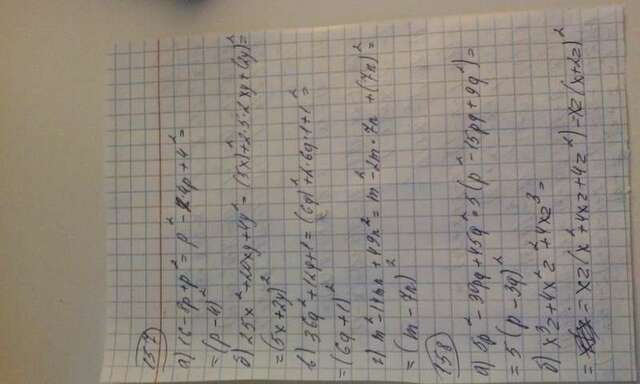 157
а) 16-8p+p²=p²-2·4p+4²=
=(p-4)²
б) 25x²+20xy+4y²=(5x)²+2·5·2xy+(2y)²=
=(5x+2y)²
в) 36q²+12q+1=(6q)²+2·6q·1+1²=
=(6q+1)²
г) m²-14mn+49n²=m²-2m·7n+(7n)²=
=(m-7n)²
158
а) 5p²-30pq+45q²=5(p²-15pq+9q²)=
=5(p-3q)²
б) x³z+4x²z²+4xz³=
=xz(x²+4xz+4z²)=xz(x+2z)²